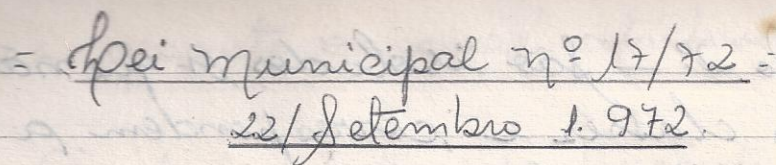 = Lei Municipal nº 17/72 =
22/Setembro 1.972.